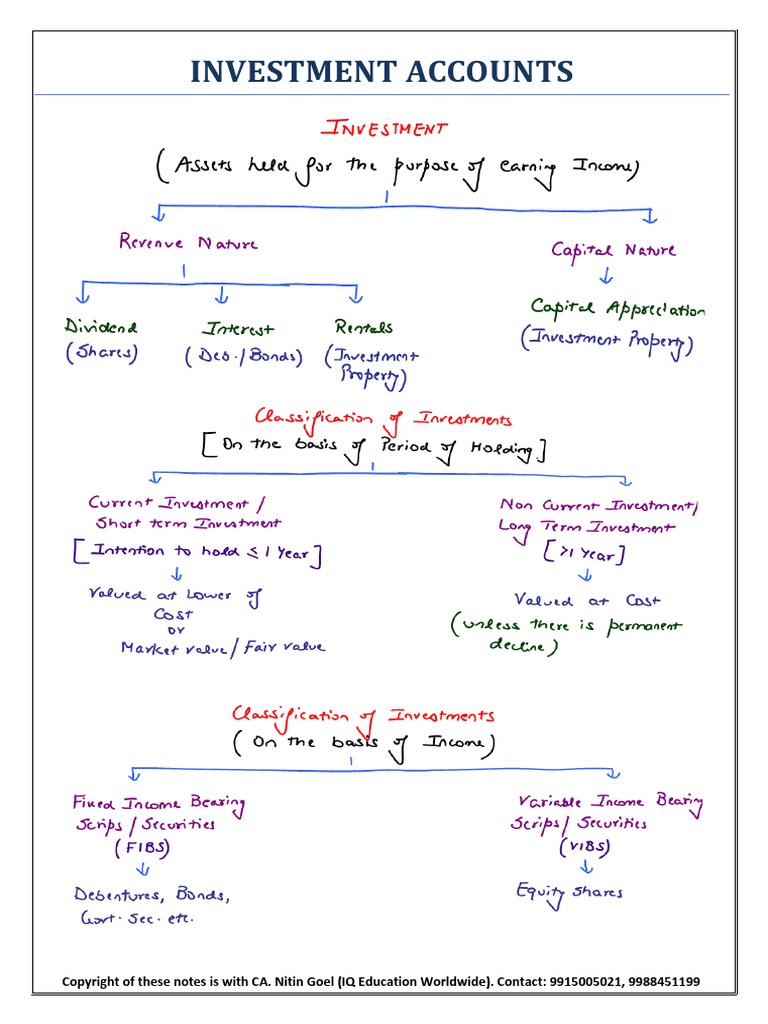 INVESTMENT ACCOUNTS
INVESTMENT
(Assets held for the purpose of earning Income)
Revenue Nature
Capital Nature
Dividend
(Shares)
Interest
(Deb./Bonds)
Rentals
(Investment
Property)
Capital Appreciation
(Investment Property)
Classification of Investments
[On the basis of Period of Holding]
Current Investment /
Short term Investment
[Intention to hold ≤ 1 Year]
Valued at Lower of
Cost
or
Market value / Fair value
Non Current Investment/
Long Term Investment
[>1 Year]
Valued at Cost
(unless there is permanent
decline)
Classification of Investments
(On the basis of Income)
Fixed Income Bearing
Scrips / Securities
(FIBS)
Debentures, Bonds,
Govt. Sec. etc.
Variable Income Bearing
Scrips / Securities
(VIBS)
Equity shares
Copyright of these notes is with CA. Nitin Goel (IQ Education Worldwide). Contact: 9915005021, 9988451199